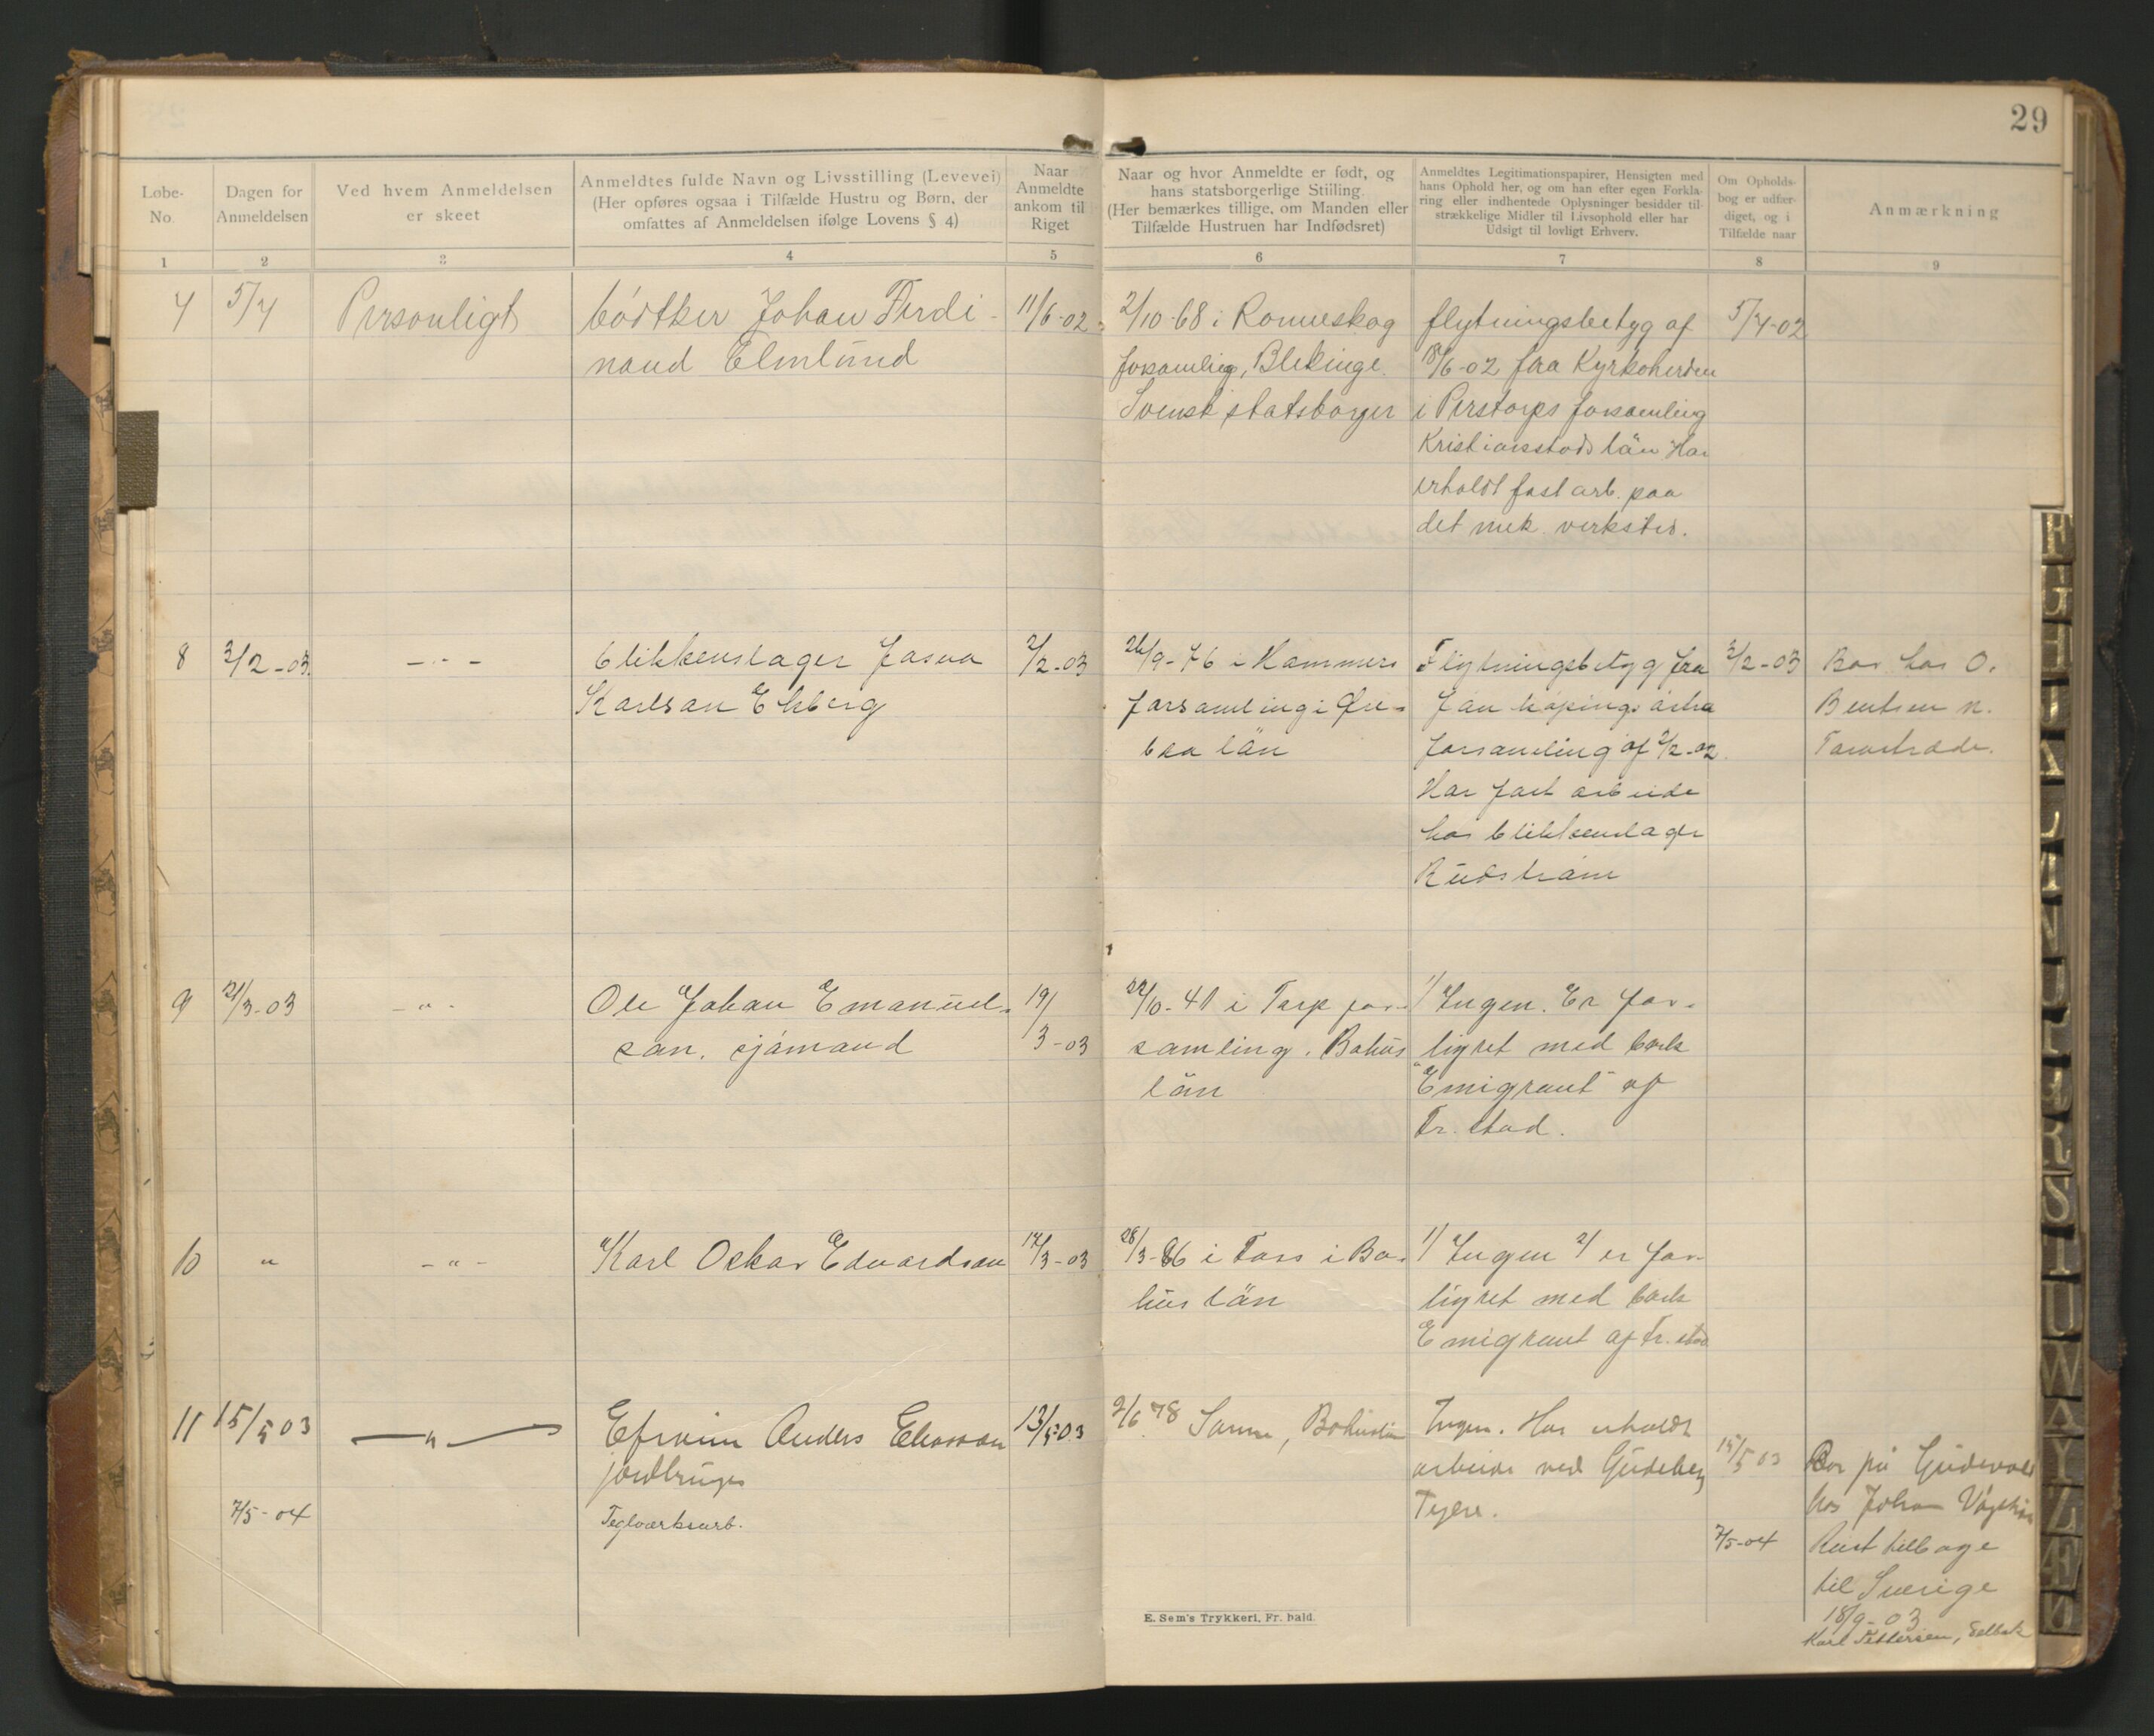 29
Løbe-
No.
Dagen for
Anmeldelsen
Ved hvem Anmeldelsen
er skeet
Anmeldtes fulde Navn og Livsstilling (Levevei)
(Her opføres ogsaa i Tilfælde Hustru og Børn, der
omfattes af Anmeldelsen ifølge Lovens § 4)
Naar
Anmeldte
ankom til
Riget
Naar og hvor Anmeldte er født, og
hans statsborgerlige Stiiling
(Her bemærkes tillige, om Manden eller
Tilfælde Hustruen har Indfødsret)
Anmeldtes Legitimationspapirer, Hensigten med
hans Ophold her, og om han efter egen Forkla-
ring eller indhentede Oplysninger besidder til-
strækkelige Midler til Livsophold eller har
Udsigt til lovligt Erhverv.
Om Opholds-
bog er udfær-
diget, og i
Tilfælde naar
Anmærkning
1 2 3 4 5 6 7 8 9
7
5/7
Personligt
bødtker Johan Ferdi-
nand Elmlund
11/6-02
2/10-68 i Ronneskog
forsamling, Blekinge.
Svensk statsborger
flytningsbetyg af
18/6-02 fra Kyrkoherden
i Perstorps forsamling
Kristiansstads län Har
erholdt fast arb. paa
det mek. verksted.
5/7-02
8
3/2-03.
-"-
blikkenslager Josua
Karlson Ekberg
2/2-03
26/9-76 i Hammers
forsamling i Øre-
bro län
Flytningsbetyg fra
Jönköpings östra
forsamling af 2/2-02.
Har fast arbeide
hos blikkenslager
Rudström
3/2-03
Bor hos O.
Bentsen n.
9
21/3-03
-"-
Ole Johan Emanuel-
son. sjömand
19/
3-03
22/10-41 i Torp for-
samling. Bohus
län
1/ Ingen. Er for-
lyret med bark
"Emigrant" af
Fr. stad.
10
"
-"-
Karl Oskar Edvardson
17/3-03
28/3-86 i Fors i Bo-
hus län
1/ Ingen 2/ er for-
lyret med bark
Emigrant af Fr. stad
11
15/5 03
-"-
Efraim Anders Eliasson
jordbruger
13/5 03
2/6 78 Sanne, Bohuslän
Ingen. Har erholdt
arbeide ved Gudeberg
Teglv.
15/5 03
Bor på Gudeberg
hos Johan
7/5-04
Teglværksarb.
7/5-04
Reist tilbage
til Sverige
18/9-03
Karl Pettersen, Selbak
E. Sem's Trykkeri, Fr. hald.
F
G
H
I
J
K
L
M
N
O
P
R
S
T
U
W
X
Y
Z
Æ
Ø